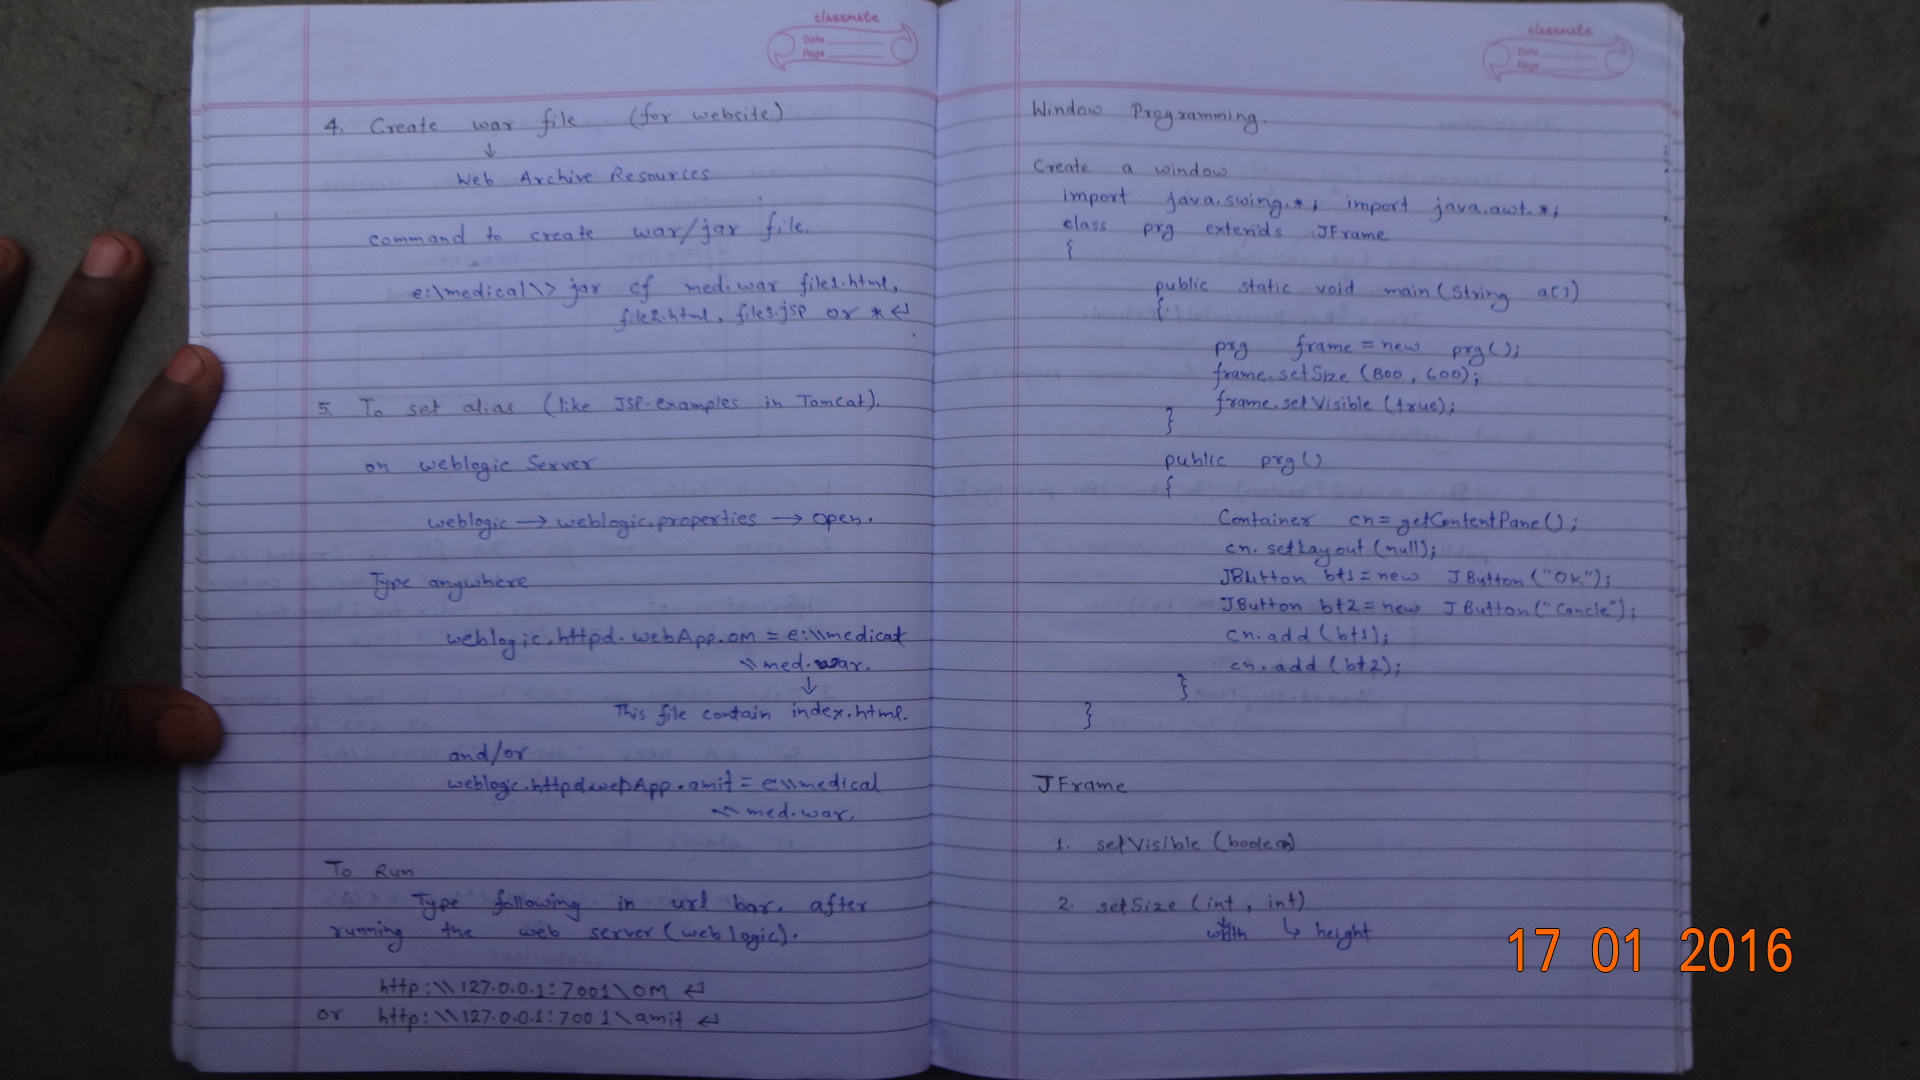 classmate
Date
Page
4. Create war file (for website)
↓
Web Archive Resources
command to create war/jar file.
e:\medical\> jar cf med.war file1.html,
file2.html, file3.jsp or * ↵
5. To set alias (like JSP-examples in Tomcat).
on weblogic Server
weblogic → weblogic.properties → open.
Type anywhere
weblogic.httpd.webApp.om = e:\\medical
\\med.war.
↓
This file contain index.html.
and/or
weblogic.httpd.webApp.amit = e\\medical
\\med.war.
To Run
Type following in url bar, after
running the web server (weblogic).
http:\\127.0.0.1:7001\OM ↵
or http:\\127.0.0.1:7001\amit ↵
classmate
Date
Page
Window Programming.
Create a window
import java.swing.*; import java.awt.*;
class prg extends JFrame
{
public static void main(String a[])
{
prg frame = new prg();
frame.setSize (800, 600);
frame.setVisible (true);
}
public prg()
{
Container cn = getContentPane();
cn.setLayout (null);
JButton bt1 = new JButton ("OK");
JButton bt2 = new JButton ("Cancle");
cn.add (bt1);
cn.add (bt2);
}
}
JFrame
1. setVisible (boolean)
2. setSize (int, int)
width ↳ height
17 01 2016